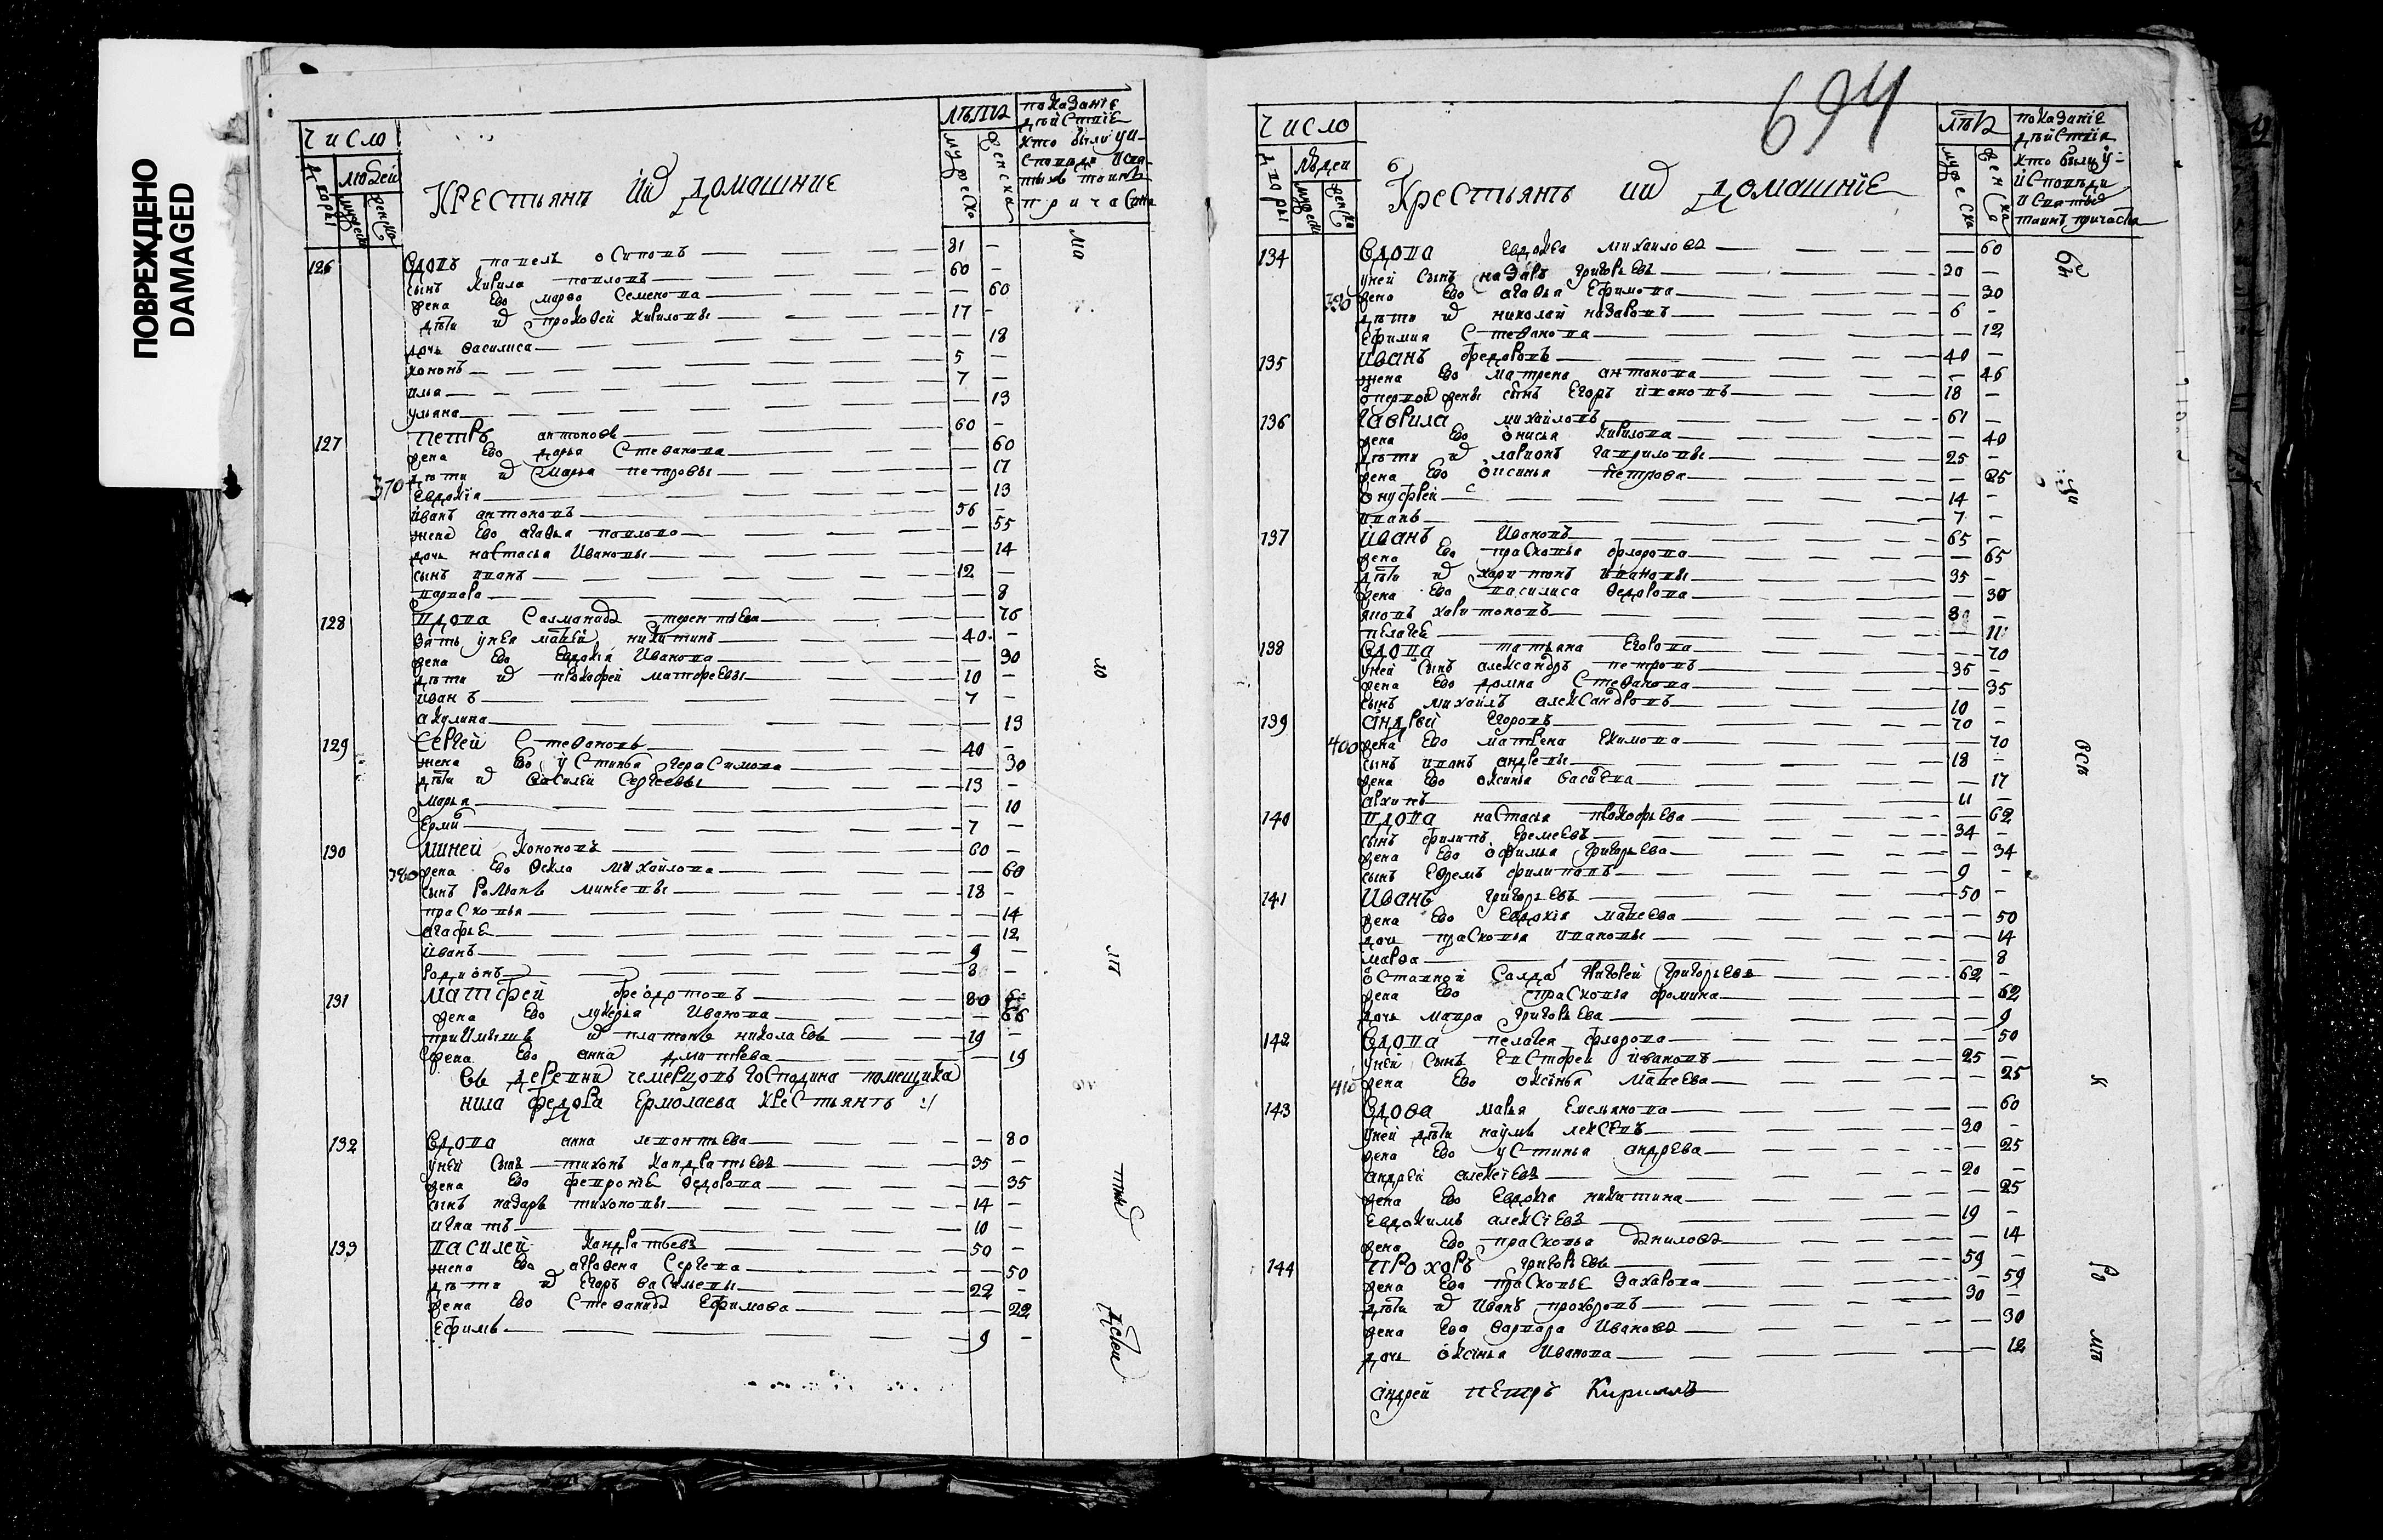 ПОВРЕЖДЕНО
DAMAGED
число
людей
крестьянъ ихъ домашние
лѣта
показание
действие
кто были у и-
споведи и свя-
тыхъ таинъ
причастия
126 вдовъ павелъ осиповъ 81
сынъ кирила павловъ 60
жена ево марѳа семенова 60
дѣти их прокоѳей кириловы 17
дочь василиса 18
кононъ 5
илья 7
ульяна 13
127 петръ антоновъ 60
жена ево дарья стеѳанова 60
дѣти их марья петровы 17
370 евдокия 13
иванъ антоновъ 56
жена ево агаѳья павлова 55
дочь настасья ивановы 14
сынъ иванъ 12
варвара 8
128 вдова саломанида терентьева 76
зять у нея матвей никитинъ 40
жена ево евдокия иванова 30
дѣти их прокофей матфеевы 10
иванъ 7
акулина 13
129 сергей стеѳановъ 40
жена ево устинья герасимова 30
дѣти их василей сергеевы 13
марья 10
ермил 7
130 миней кононовъ 60
380 жена ево ѳекла михайлова 60
сынъ романъ минеевы 18
прасковья 14
агафье 12
иванъ 9
родионъ 8
131 матфей феодотовъ 80
жена ево лукерья иванова 66
приимышъ их платонъ николаевъ 19
жена ево анна дмитрева 19
въ деревни чемерцовъ господина помещика
нила федора ермолаева крестьянъ :/
132 вдова анна леонтьева 80
у ней сынъ тихонъ кандратьевъ 35
жена ево февроние ѳедорова 35
сынъ назаръ тихоновы 14
игнатъ 10
133 василей кандратьевъ 50
жена ево аграѳена сергева 50
дѣти их егоръ васильевы 22
жена ево стеѳанида ефимова 22
ефимъ 9
694
число
людей
крестьянъ их домашние
лѣтъ
показание
действия
кто были у
исповѣди
и святыхъ
таинъ причастия
134 вдова евдокея михайлова 60
у ней сынъ назаръ григорьевъ 30
390 жена ево агаѳья ефимова 30
дѣти их николай назаровъ 6
ефимия стеѳанова 12
135 иванъ федоровъ 40
жена ево матрена антонова 46
от первой жены сынъ егоръ ивановъ 18
136 гаврила михайловъ 61
жена ево онисья кирилова 40
дѣти их ларионъ гавриловы 25
жена ево оксинья петрова 25
онуфрей 14
иванъ 7
137 иванъ ивановъ 65
жена ево прасковья фролова 65
дѣти их харитонъ ивановы 35
жена ево василиса ѳедорова 30
яковъ харитоновъ 8
пелагее 11
138 вдова татьяна егорова 70
у ней сынъ александръ петровъ 35
жена ево домна стеѳанова 35
сынъ михайлъ александровъ 10
139 андрей егоровъ 70
400 жена ево матрена екимова 70
сынъ иванъ андревы 18
жена ево оксинья васильева 17
архипъ 11
140 вдова настасья прокофьева 62
сынъ филипъ еремеевъ 34
жена ево офимья григорьева 34
сынъ ефремъ филиповъ 9
141 иванъ григорьевъ 50
жена ево евдокия матвеева 50
дочь прасковья ивановы 14
марѳа 8
отставной салдатъ григорей григорьевъ 62
жена ево прасковья фомина 62
дочь мавра григорьева 9
142 вдова пелагея флорова 50
у ней сынъ евстфей ивановъ 25
410 жена ево оксинья матвеева 25
143 вдова марья емельянова 60
у ней дѣти наумъ лексеевъ 30
жена ево устинья андрева 25
андрей алексеевъ 20
жена ево евдокия никитина 25
евдокимъ алексиевъ 19
жена ево прасковья данилова 14
144 прохоръ григорьевъ 59
жена ево прасковье захарова 59
дѣти их иванъ прохоровъ 30
жена ева варвара иванова 30
дочь оксинья иванова 12
андрей петръ Кириллъ